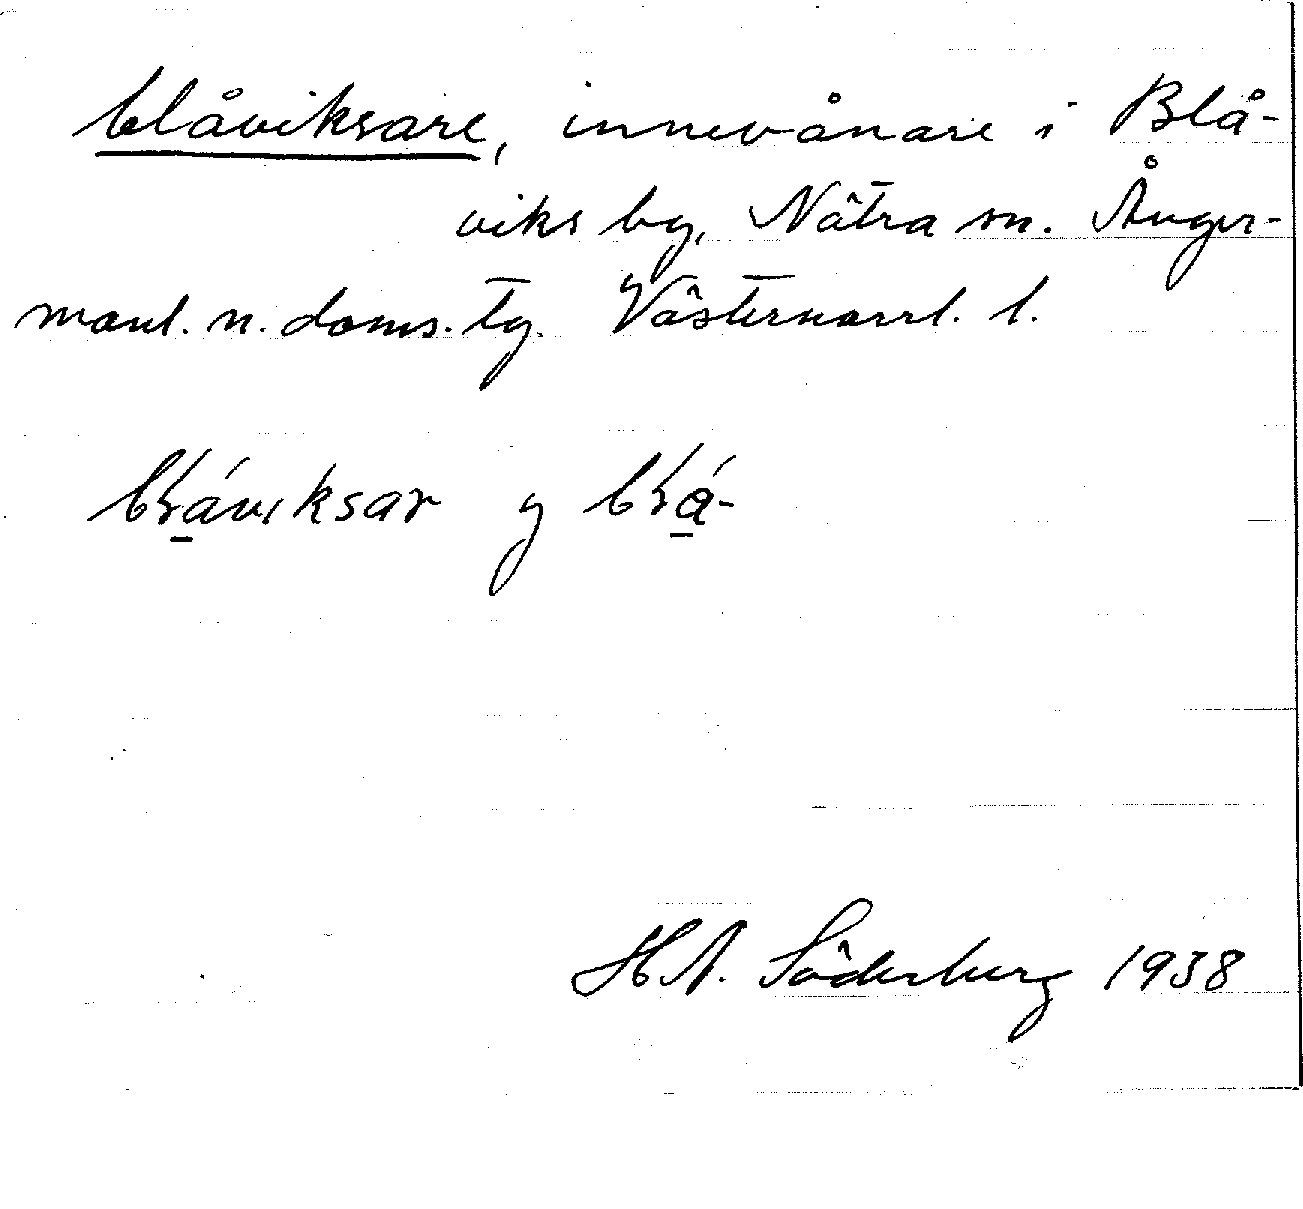 blåviksare, innevånare i Blå-
viks by, Nätra sn. Ånger-
manl. n. doms. tg. Västernorrl. l.
H.N. Söderberg 1938